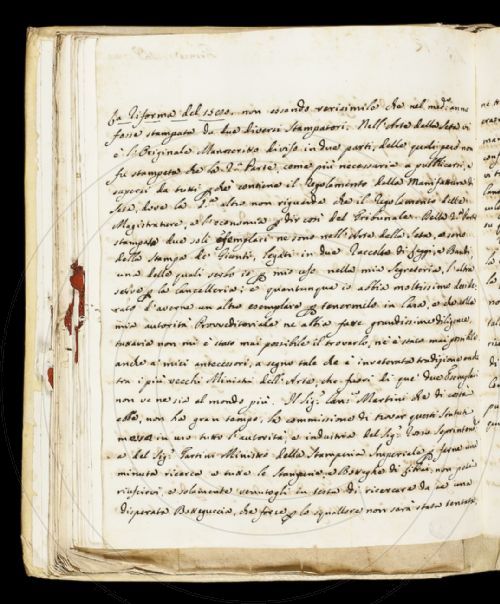 la Riforma del 1580. non essendo verisimile che nel med.º anno
fosse stampata da due diversi Stampatori. Nell'Arte della Seta vi
è l'Originale Manoscritto diviso in due parti, delle quali però non
fù stampata che la 2.ª Parte, come più necessaria a pubblicarsi, e
sapersi da tutti, che contiene il Regolamento delle Manifatture di
Seta, dove la P.ª altro non riguarda che il Regolamento delle
Magistrature, e l'economia p dir così del Tribunale. Della 2.ª Parte
stampata due soli Esemplari ne sono nell'Arte della Seta, e sono
della stampa de' Giunti, legati in due Raccolte di Leggi, e Bandi,
una delle quali serbo io p mio uso nella mia Segreteria, l'altra
serve p la Cancelleria; e quantunque io abbia moltissimo deside-
rato d'averne un altro esemplare p tenermelo in Casa, e che colla
mia autorità Provveditoriale ne abbia fatte grandissime diligenze,
tuttavia non mi è stato mai possibile il trovarlo, nè è stato mai possibile
anche a' miei antecessori, a segno tale che è inveterata tradizione anche
tra i più vecchi Ministri dell'Arte, che fuori di que' due Esemplari
non ve ne sia al mondo più. Il Sig.r Canc.e Martini che di costà
ebbe, non ha gran tempo, la commissione di trovar questi Statuti
messe in uso tutta l'autorità, e industria del Sig.r
e del Sig.r Ministro della Stamperia Imperiale p farne una
minuta ricerca a tutte le Stamperie, e Botteghe di Librai, non potè
riuscirvi, e solamente venutogli in testa di ricercare da se una
disperata Botteguccia, che forse p lo squallore non sarà stata tentata,